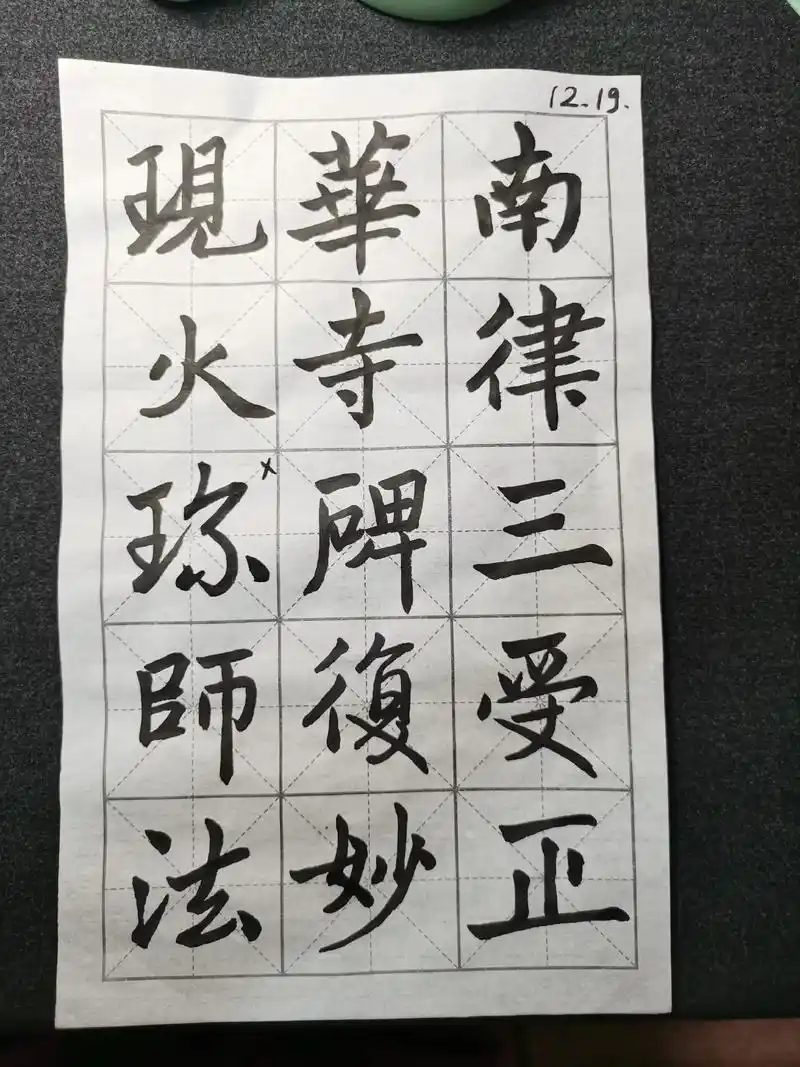 12.19.
南律三受正
華寺碑復妙
現火珎師法